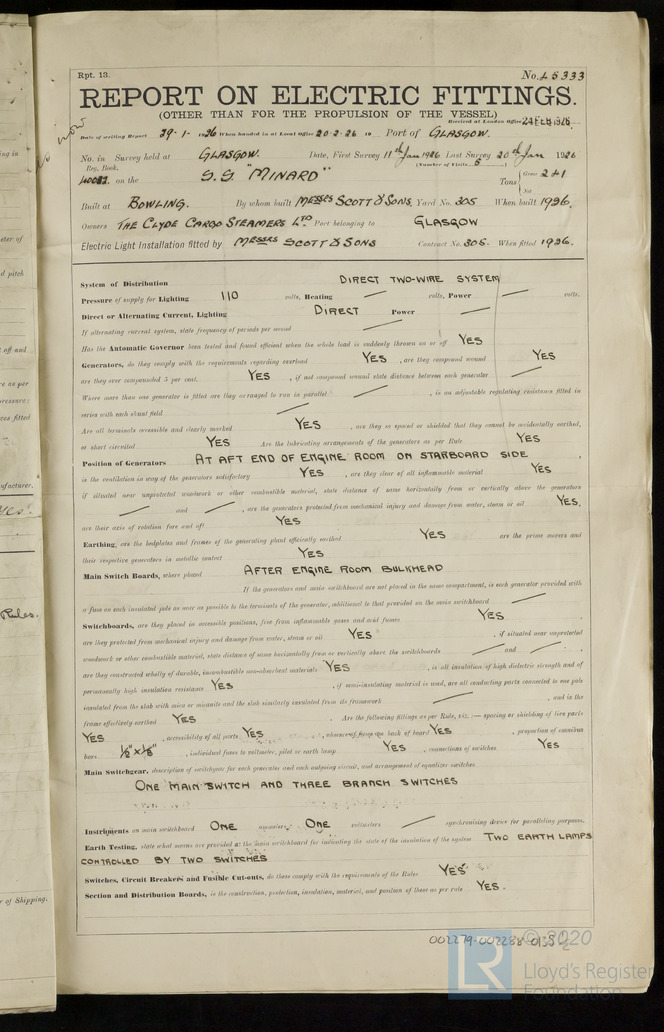 Rpt. 13.
No. 45333
REPORT ON ELECTRIC FITTINGS.
(OTHER THAN FOR THE PROPULSION OF THE VESSEL)
Received at London Office 24 FEB 1926
Date of writing Report 29-1-1926 When handed in at Local Office 20-2-26 19 Port of GLASGOW.
No. in Survey held at GLASGOW. Date, First Survey 11th Jan 1926 Last Survey 20th Jan 1926
Reg. Book. (Number of Visits 5
on the S.S. "MINARD" Tons { Gross 241
Net
Built at BOWLING. By whom built MESSRS SCOTT & SONS. Yard No. 305 When built 1926.
Owners THE CLYDE CARGO STEAMERS LTD Port belonging to GLASGOW
Electric Light Installation fitted by MESSRS SCOTT & SONS Contract No. 305. When fitted 1926.
System of Distribution DIRECT TWO-WIRE SYSTEM
Pressure of supply for Lighting 110 volts, Heating — volts, Power — volts.
Direct or Alternating Current, Lighting DIRECT Power —
If alternating current system, state frequency of periods per second —
Has the Automatic Governor been tested and found efficient when the whole load is suddenly thrown on or off YES
Generators, do they comply with the requirements regarding overload YES, are they compound wound YES
are they over compounded 5 per cent. YES, if not compound wound state distance between each generator —
Where more than one generator is fitted are they arranged to run in parallel —, is an adjustable regulating resistance fitted in
series with each shunt field —
Are all terminals accessible and clearly marked YES, are they so spaced or shielded that they cannot be accidentally earthed,
or short circuited YES Are the lubricating arrangements of the generators as per Rule YES
Position of Generators AT AFT END OF ENGINE ROOM ON STARBOARD SIDE
is the ventilation in way of the generators satisfactory YES, are they clear of all inflammable material YES
if situated near unprotected woodwork or other combustible material, state distance of same horizontally from or vertically above the generators
— and —, are the generators protected from mechanical injury and damage from water, steam or oil YES,
are their axis of rotation fore and aft YES
Earthing, are the bedplates and frames of the generating plant efficiently earthed YES are the prime movers and
their respective generators in metallic contact YES
Main Switch Boards, where placed AFTER ENGINE ROOM BULKHEAD
If the generators and main switchboard are not placed in the same compartment, is each generator provided with
a fuse on each insulated pole as near as possible to the terminals of the generator, additional to that provided on the main switchboard —
Switchboards, are they placed in accessible positions, free from inflammable gases and acid fumes YES
are they protected from mechanical injury and damage from water, steam or oil YES, if situated near unprotected
woodwork or other combustible material, state distance of same horizontally from or vertically above the switchboards — and —,
are they constructed wholly of durable, incombustible non-absorbent materials YES, is all insulation of high dielectric strength and of
permanently high insulation resistance YES, if semi-insulating material is used, are all conducting parts connected to one pole
insulated from the slab with mica or micanite and the slab similarly insulated from its framework —, and is the
frame effectively earthed YES Are the following fittings as per Rule, viz.:— spacing or shielding of live parts
YES, accessibility of all parts YES, absence of fuses on back of board YES, proportion of omnibus
bars ⅛" × ⅛", individual fuses to voltmeter, pilot or earth lamp YES, connections of switches YES
Main Switchgear, description of switchgear for each generator and each outgoing circuit, and arrangement of equalizer switches
ONE MAIN SWITCH AND THREE BRANCH SWITCHES
Instruments on main switchboard ONE ammeters, ONE voltmeters — synchronising device for paralleling purposes.
Earth Testing, state what means are provided at the main switchboard for indicating the state of the insulation of the system TWO EARTH LAMPS
CONTROLLED BY TWO SWITCHES
Switches, Circuit Breakers and Fusible Cut-outs, do these comply with the requirements of the Rules YES
Section and Distribution Boards, is the construction, protection, insulation, material, and position of these as per rule YES.
002279-002288-0135½
© 2020
LR Lloyd's Register
Foundation